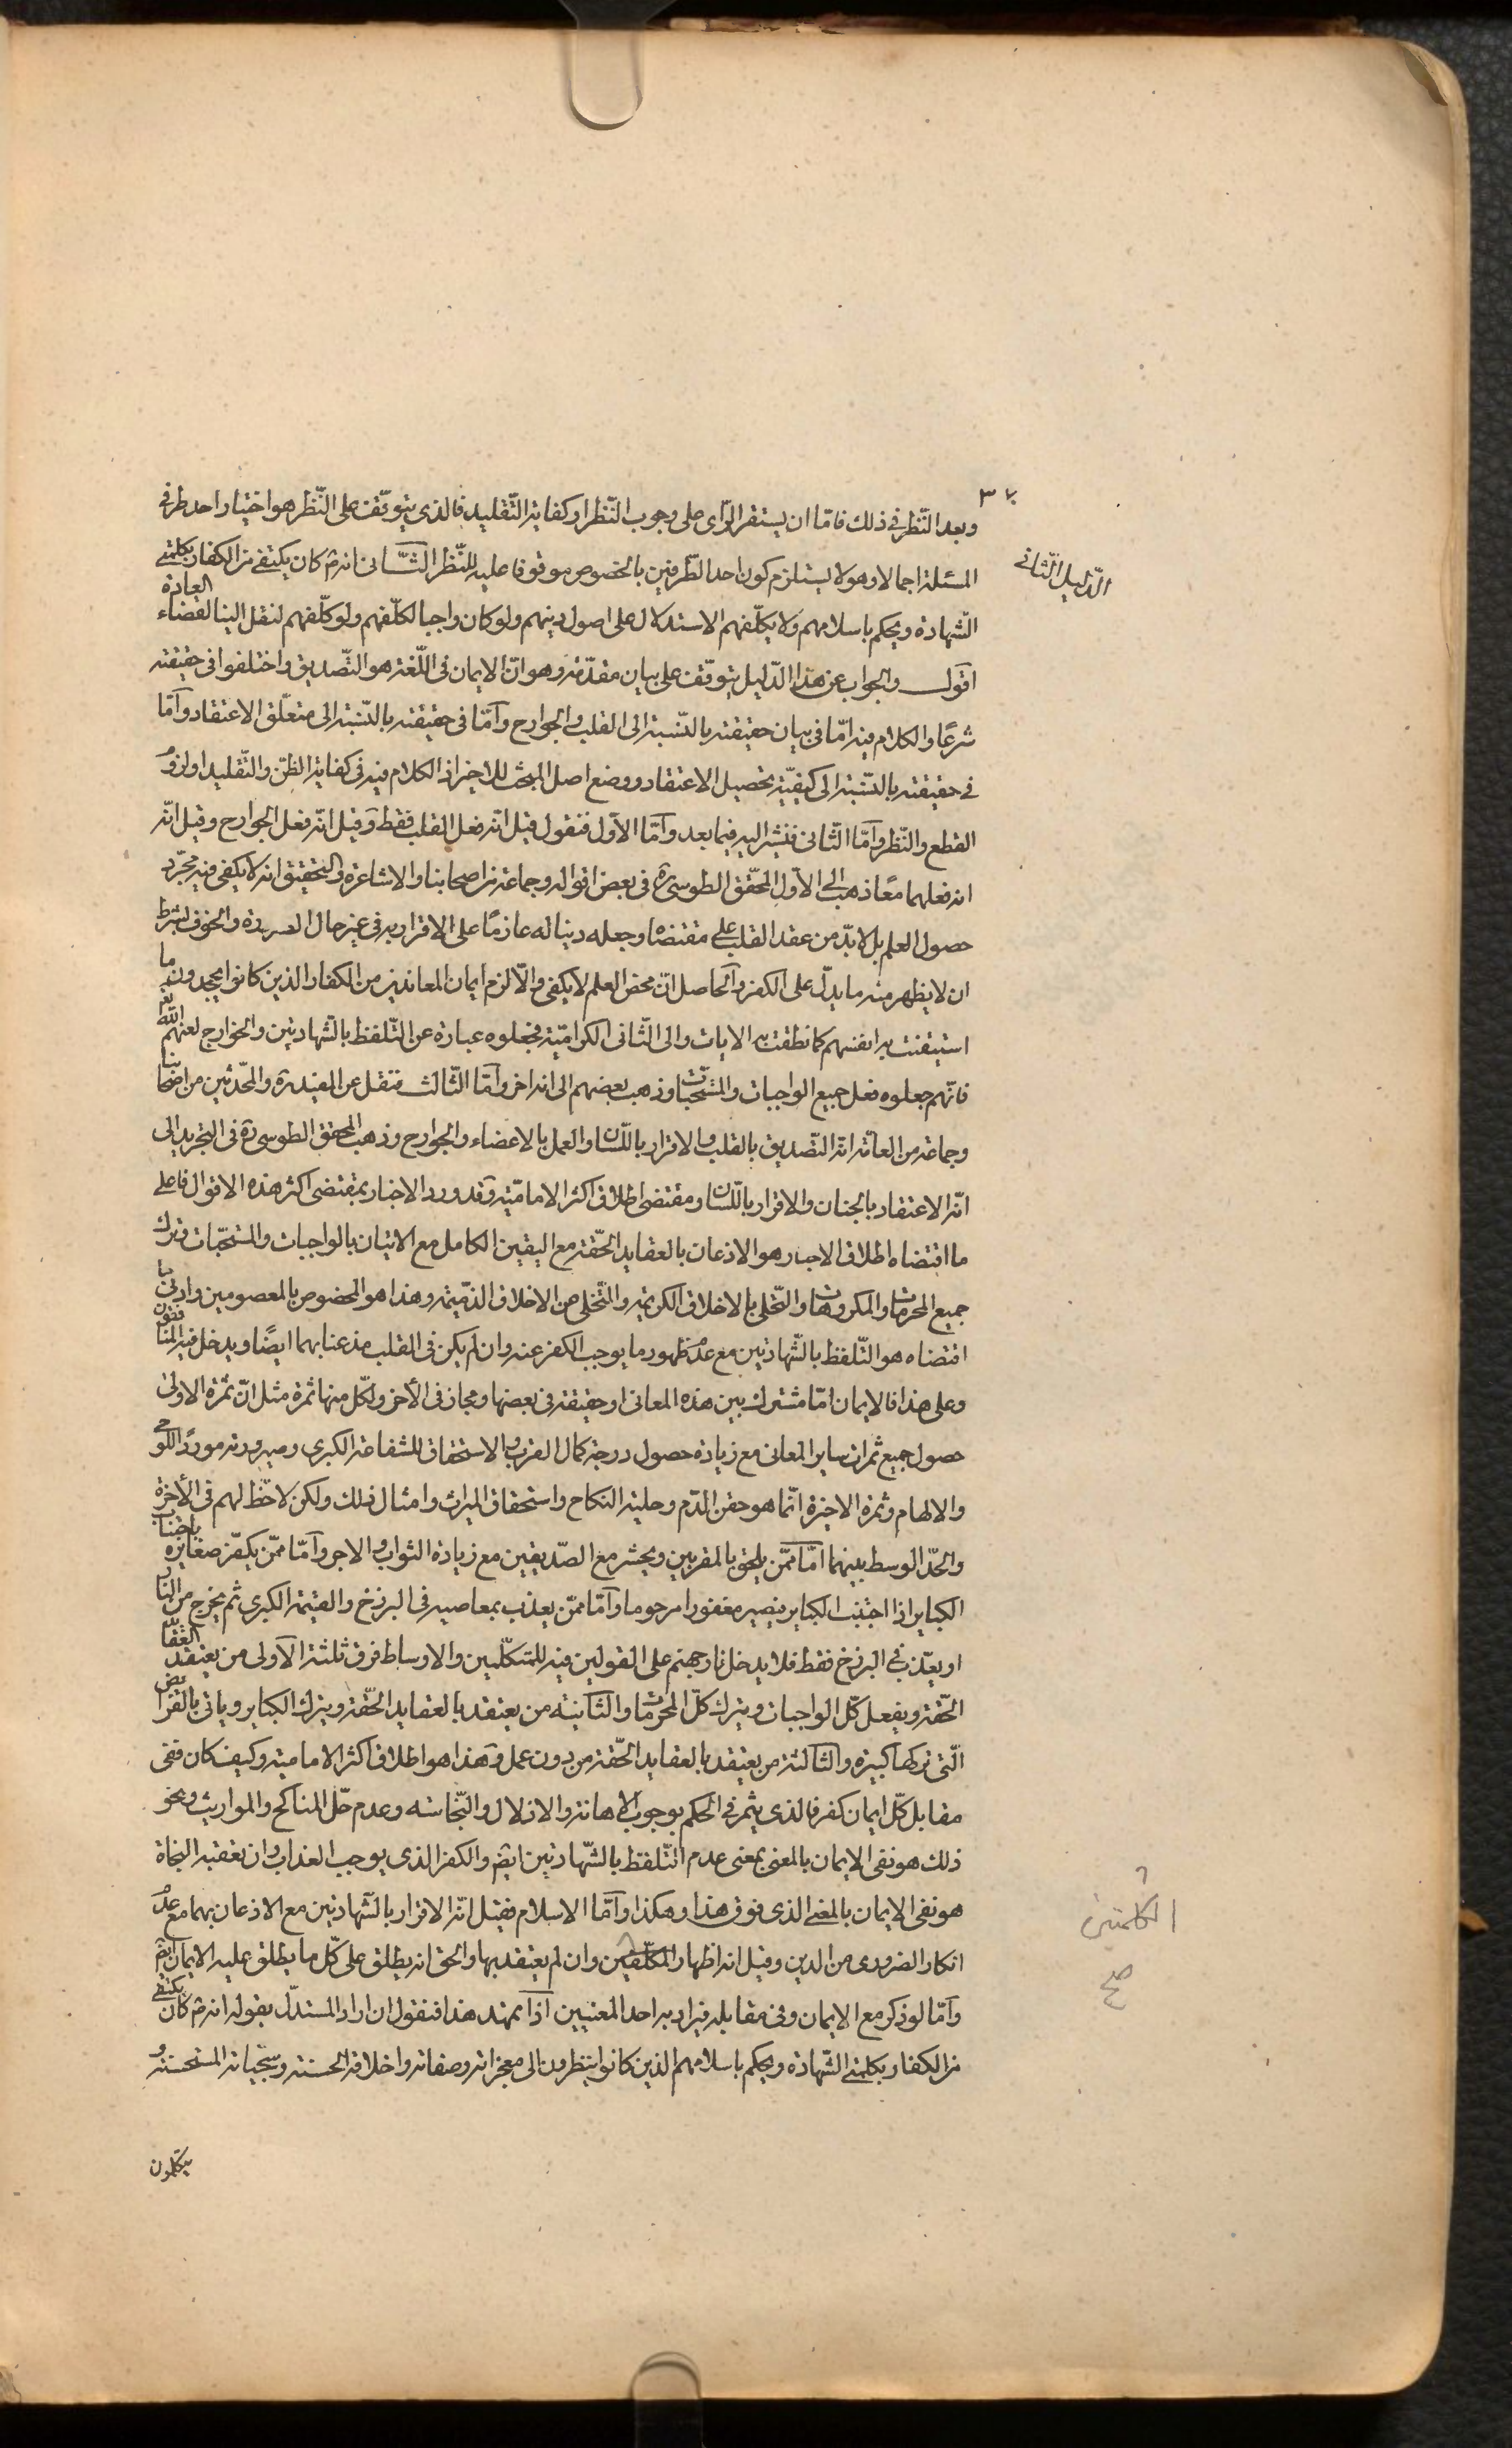 ٣٧
وبعد النّظر في ذلك فامّا ان يستقر الرّأى على وجوب النّظر او كفاية التّقليد فالذى يتوقّف على النّظر هو اختيار احد طرفى
الدّليل الثّانى
المسئلة اجمالا وهو لا يستلزم كون احد الطّرفين بالخصوص موقوفا عليه للنّظر الثّانى انه ص كان يكتفى من الكفار بكلمتى
الشّهادة ويحكم باسلامهم ولا يكلّفهم الاستدلال على اصول دينهم ولو كان واجبا لكلّفهم ولو كلّفهم لنقل الينا لقضاء العادة
اقول والجواب عن هذا الدّليل يتوقّف على بيان مقدّمة وهو انّ الايمان فى اللّغة هو التّصديق واختلفوا فى حقيقته
شرعًا والكلام فيه امّا فى بيان حقيقته بالنّسبة الى القلب والجوارح وامّا فى حقيقته بالنّسبة الى متعلّق الاعتقاد وامّا
فى حقيقته بالنّسبة الى كيفيّة تحصيل الاعتقاد ووضع اصل المبحث للاخير اذ الكلام فيه فى كفاية الظّن والتّقليد او لزوم
القطع والنّظر وامّا الثّانى فنشير اليه فيما بعد وامّا الاوّل فنقول قيل انّه فعل القلب فقط وقيل انّه فعل الجوارح وقيل انّه
انه فعلهما معًا ذهب الى الاوّل المحقّق الطوسى ره فى بعض اقواله وجماعة من اصحابنا والاشاعرة والتحقيق انه لا يكفى فيه مجرّد
حصول العلم بل لا بدّ من عقد القلب على مقتضاه وجعله دينا له عازمًا على الاقرار به فى غير حال الضرورة والخوف بشرط
ان لا يظهر منه ما يدلّ على الكفر والحاصل انّ محض العلم لا يكفى والّا لزم ايمان المعاندين من الكفار الذين كانوا يجحدون ما
استيقنت به انفسهم كما نطقت به الايات والى الثّانى الكراميّة فجعلوه عبارة عن التّلفظ بالشّهادتين والخوارج لعنهم الله تعم
فانّهم جعلوه فعل جميع الواجبات والمستحبّات وذهب بعضهم الى انه اخر وامّا الثّالث فنقل عن المفيد ره والمحّدثين من اصحابنا
وجماعة من العامّة انّه التّصديق بالقلب والاقرار باللّسان والعمل بالاعضاء والجوارح وذهب المحقق الطوسى ره فى التجريد الى
انّه الاعتقاد بالجنان والاقرار باللّسان ومقتضى اطلاق اكثر الاماميّة وقد ورد الاخبار بمقتضى اكثر هذه الاقوال فاعلى
ما اقتضاه اطلاق الاخبار هو الاذعان بالعقايد الحقّة مع اليقين الكامل مع الاتيان بالواجبات والمستحبّات وترك
جميع المحرمات والمكروهات والتّحلى بالاخلاق الكريمة والتّخلى من الاخلاق الذّميمة وهذا هو المخصوص بالمعصومين وادنى ما
اقتضاه هو التّلفظ بالشّهادتين مع عدم ظهور ما يوجب الكفر عنه وان لم يكن فى القلب مذعنا بهما ايضًا ويدخل فيه المنافقون
وعلى هذا فالايمان امّا مشترك بين هذه المعانى او حقيقة فى بعضها ومجاز فى الأخر ولكّل منها ثمرة مثل انّ ثمرة الاولى
حصول جميع ثمرات ساير المعانى مع زيادة حصول درجة كمال القرب والاستحقاق للشفاعة الكبرى وصيرورته موردًا للوحى
والالهام وثمرة الاخيرة انّما هو حقن الدّم وحلية النكاح واستحقاق الميراث وامثال ذلك ولكن لا حّظ لهم فى الأخرة
والحدّ الوسط بينهما امّا ممّن يلحق بالمقربين ويحشر مع الصّديقين مع زيادة الثواب والاجر وامّا ممّن يكفّر صغايره باجتناب
الكباير اذا اجتنب الكباير فيصير مغفورا مرحوما وامّا ممّن يعذب بمعاصيه فى البرزخ والقيمة الكبرى ثم يخرج من النّار
او يعذّب فى البرزخ فقط فلا يدخل نار جهنم على القولين فيه للمتكلّمين والاوساط فرق ثلثة الاولى من يعتقد العقايد
الحّقة ويفعل كّل الواجبات ويترك كلّ المحرمات والثانيه من يعتقد بالعقايد الحّقة ويترك الكباير وياتى بالفرائض
الّتى تركها كبيرة والثالثة من يعتقد بالعقايد الحّقة من دون عمل وهذا هو اطلاق اكثر الامامية وكيف كان ففى
مقابل كّل ايمان كفر فالذى يثمر فى الحكم بوجوب الاهانة والاذلال والنّجاسة وعدم حّل المناكح والمواريث ونحو
ذلك هو نفى الايمان بالمعنى بمعنى عدم التّلفظ بالشّهادتين ايضم والكفر الذى يوجب العذاب وان تعقبه النجاة
هو نفى الايمان بالمعنى الذى فوق هذا وهكذا وامّا الاسلام فقيل انّه الاقرار بالشّهادتين مع الاذعان بهما مع عدم
انكار الضرورى من الدين وقيل انه اظهار المكلّفين وان لم يعتقد بها والحق انه يطلق على كّل ما يطلق عليه الايمان ايضم
الكلمتين
صح
وامّا لو ذكر مع الايمان وفى مقابله فيراد به احد المعنيين اذا تمهد هذا فنقول ان اراد المستدلّ بقوله انه ص كان يكتفى
من الكفار بكلمتى الشّهادة ويحكم باسلامهم الذين كانوا ينتظرون الى معجزاته وصفاته واخلاقه الحسنة وسجّياته المستحسنة و
يتكلمون